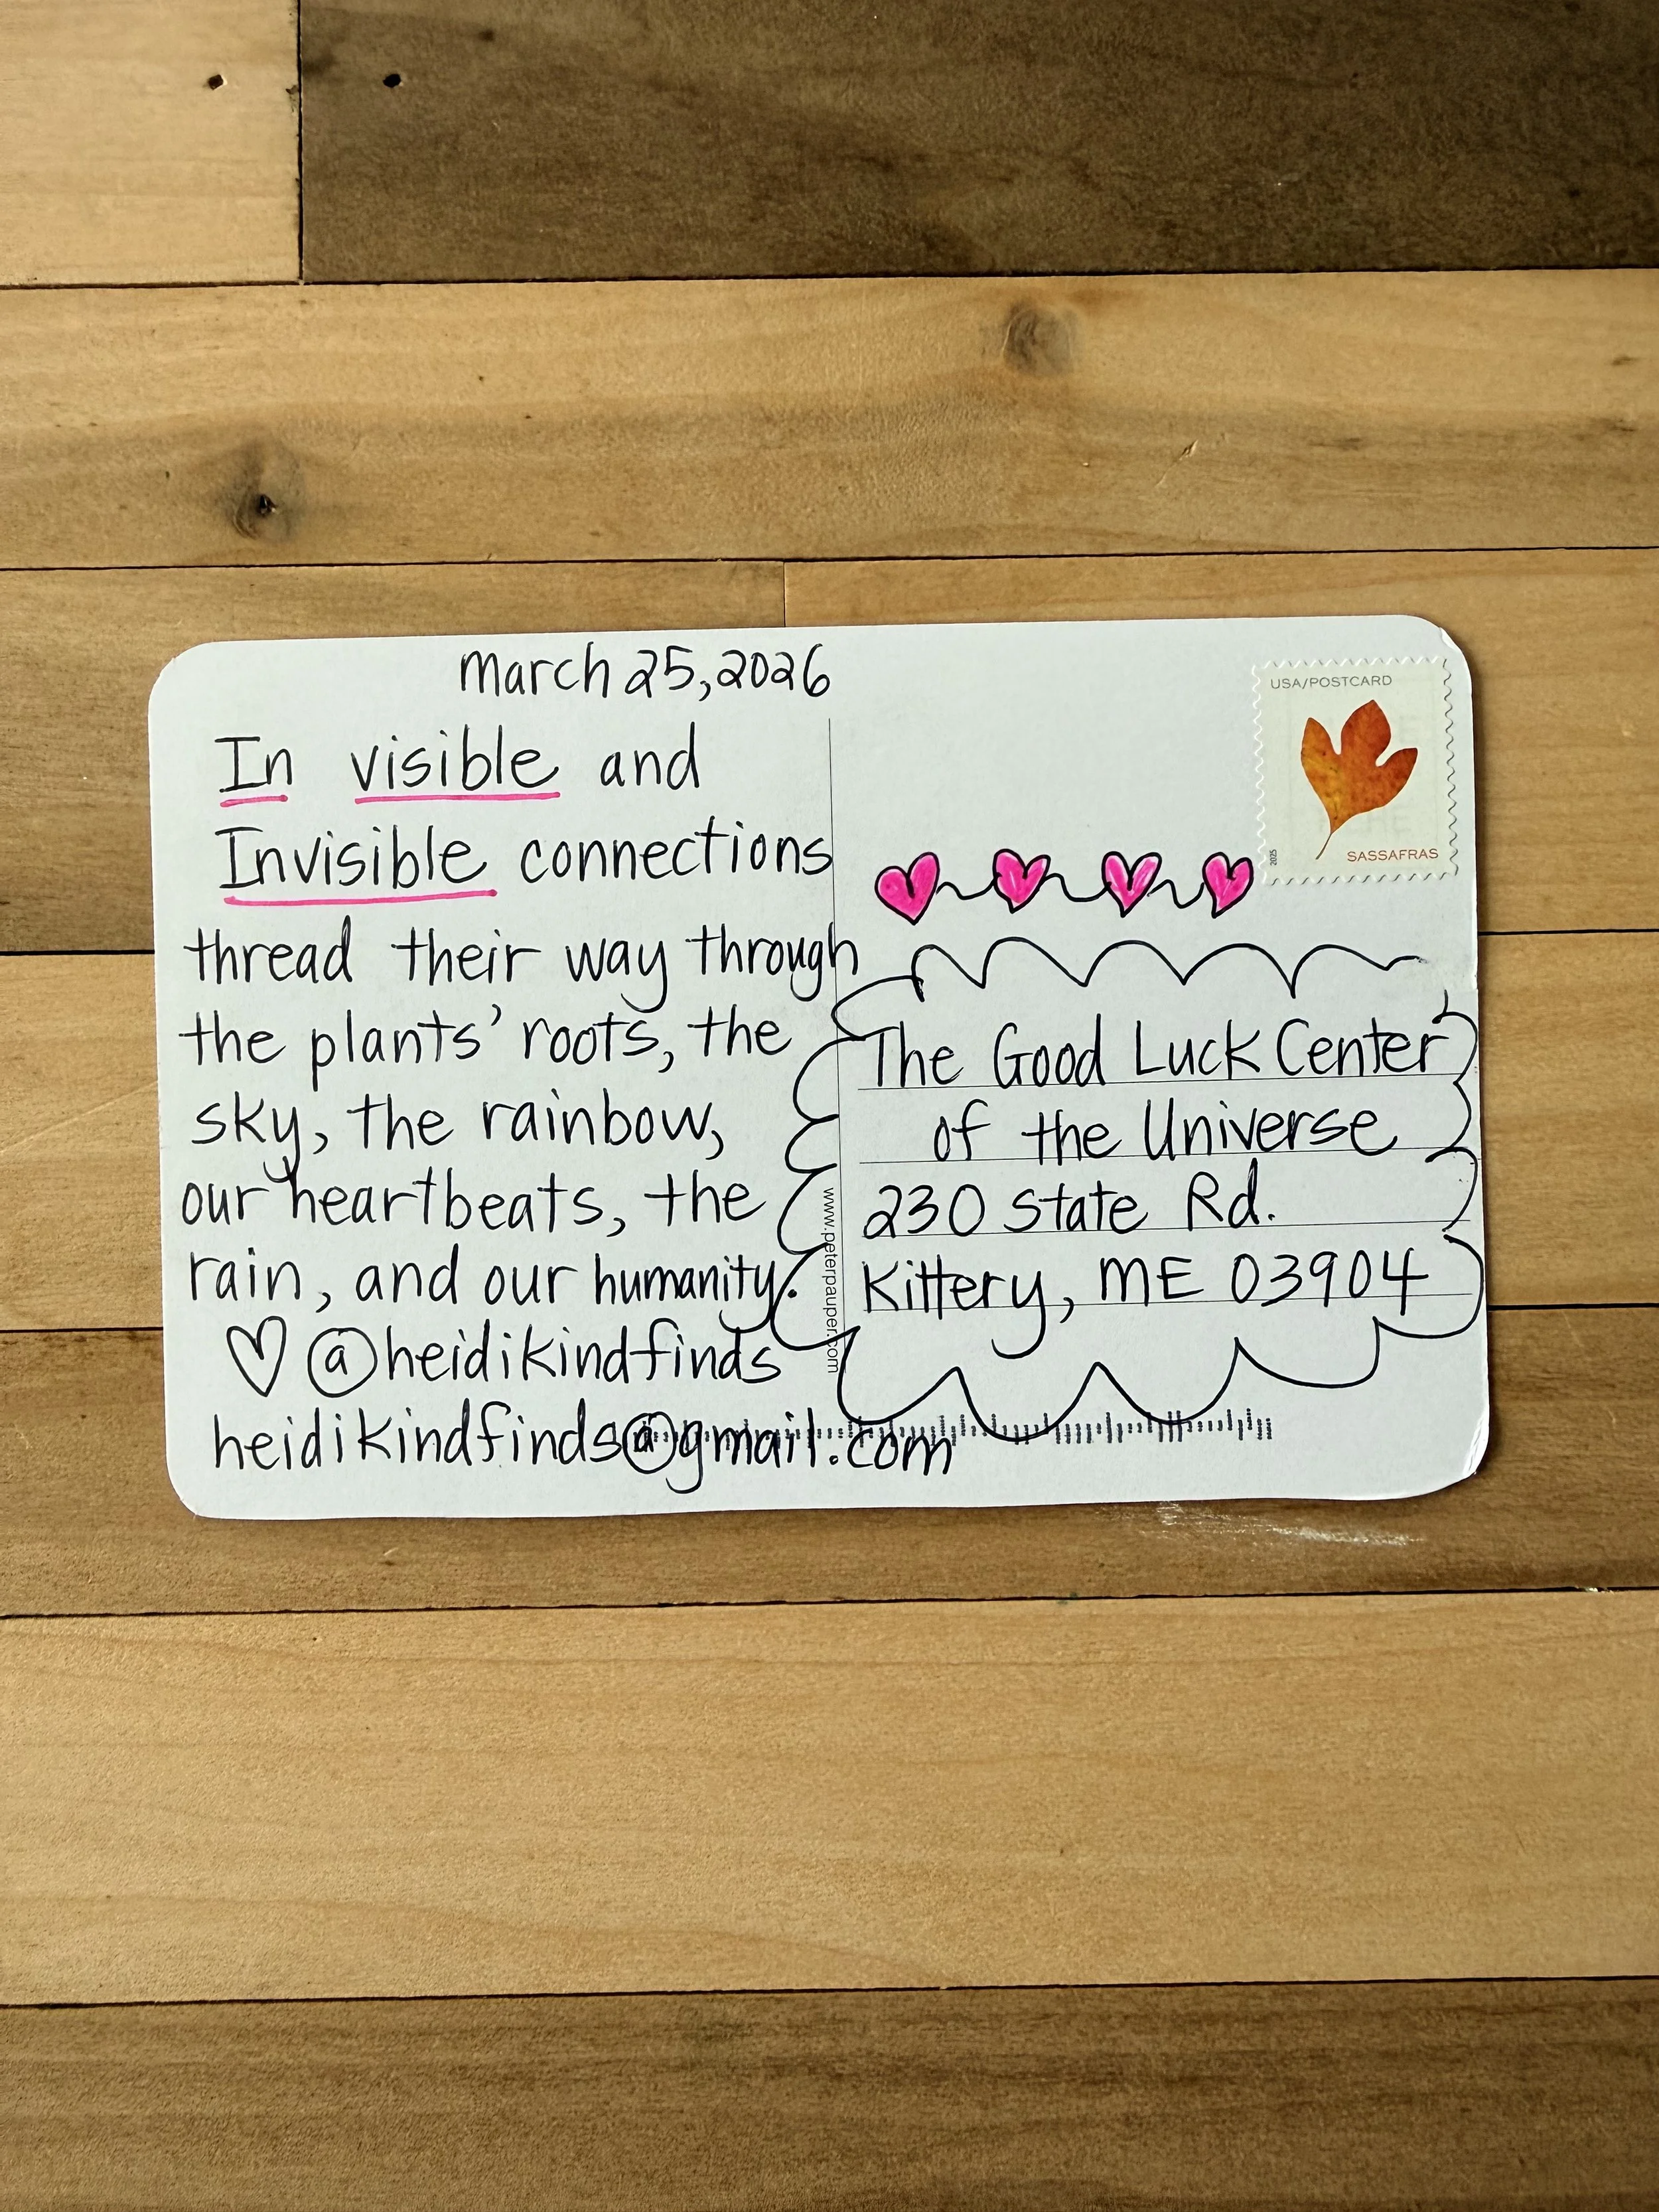 March 25, 2026
In visible and
Invisible connections
thread their way through
the plants' roots, the
sky, the rainbow,
our heartbeats, the
rain, and our humanity.
@heidikindfinds
heidikindfinds@gmail.com
www.peterpauper.com
USA/POSTCARD
2025
SASSAFRAS
The Good Luck Center
of the Universe
230 State Rd.
Kittery, ME 03904